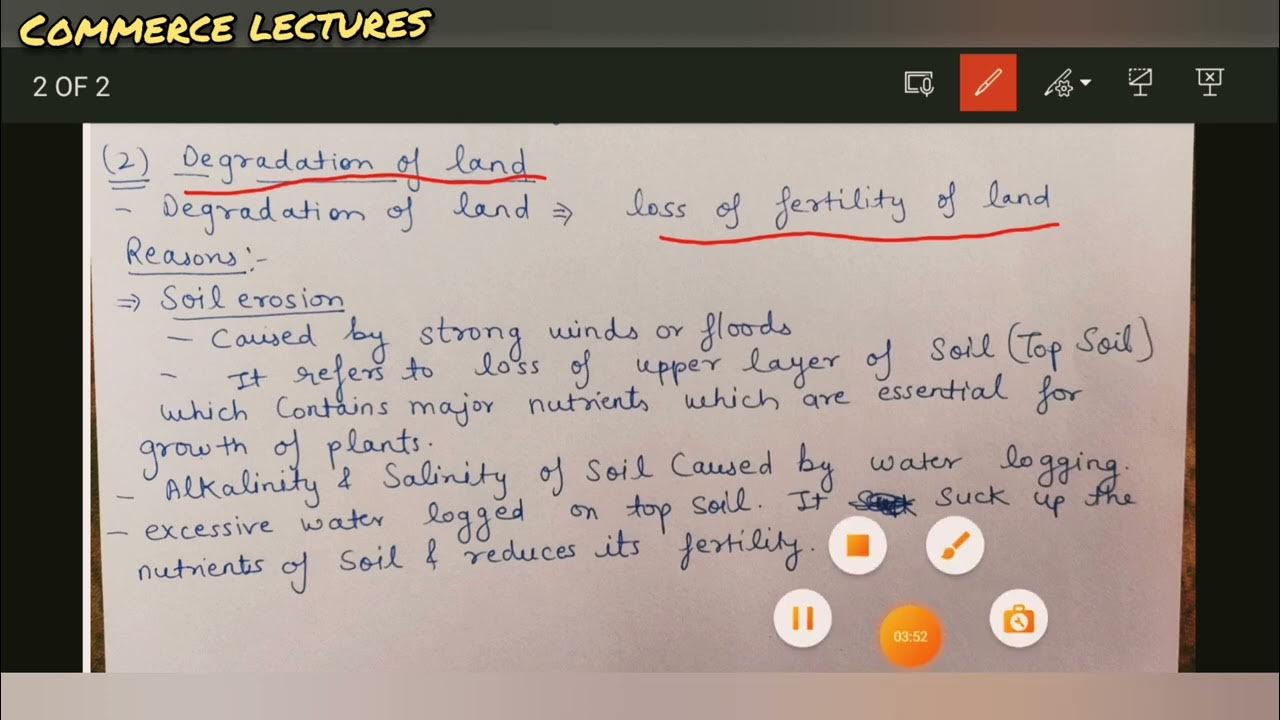 COMMERCE LECTURES
2 OF 2
(2) Degradation of land
- Degradation of land ⇒ loss of fertility of land
Reasons:-
⇒ Soil erosion
- Caused by strong winds or floods
- It refers to loss of upper layer of soil (Top Soil)
which contains major nutrients which are essential for
growth of plants.
- Alkalinity & Salinity of soil caused by water logging.
- excessive water logged on top soil. It suck up the
nutrients of soil & reduces its fertility.
03:52